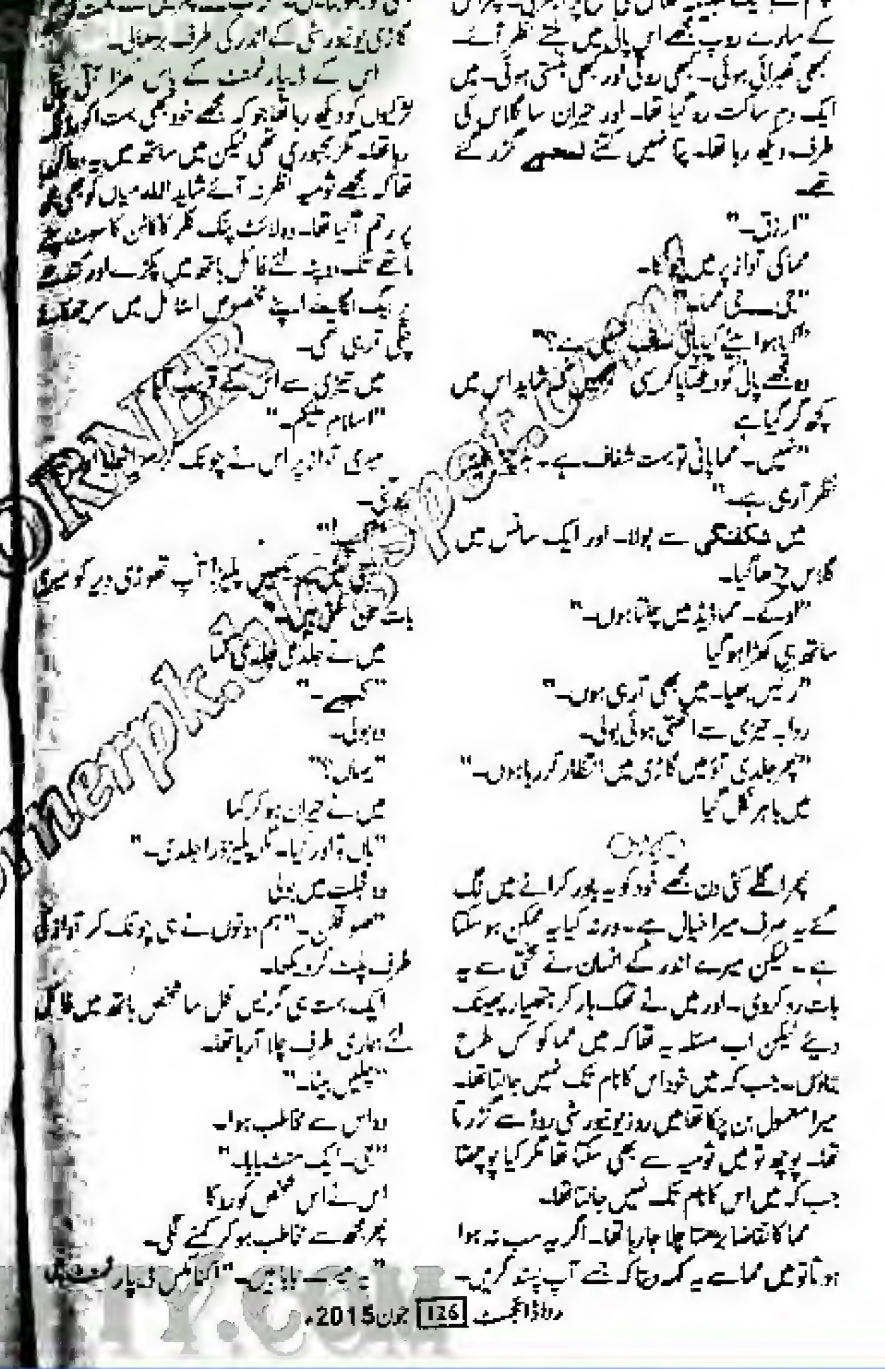 کے سارے روپ مجھے اس پانی میں بنتے نظر آئے۔
کبھی گھبرائی ہوئی۔ کبھی روتی اور کبھی ہنستی ہوئی۔ میں
ایک دم ساکت رہ گیا تھا۔ اور حیران سا گلاس کی
طرف دیکھ رہا تھا۔ پتا نہیں کتنے لمحے گزر گئے
تھے۔
"ارزق۔"
مما کی آواز پر میں چونکا۔
"جی۔۔۔ جی مما۔"
"کیا ہوا بیٹے کیا پانی صاف نہیں ہے؟"
وہ مجھے پانی کو دیکھتا پا کر شاید اس میں
کچھ گر گیا ہے
"نہیں۔ مما پانی تو بہت شفاف ہے۔
نظر آ رہی ہے۔"
میں شگفتگی سے بولا۔ اور ایک سانس میں
گلاس چڑھا گیا۔
"اوکے۔ مما ڈیڈ میں چلتا ہوں۔"
ساتھ ہی کھڑا ہو گیا
"رئیس بھیا۔ میں بھی آ رہی ہوں۔"
روا۔ تیزی سے اٹھتی ہوئی بولی۔
"پھر جلدی آؤ میں گاڑی میں انتظار کر رہا ہوں۔"
میں باہر نکل گیا
پھر اگلے کئی دن مجھے خود کو یہ باور کرانے میں لگ
گئے یہ صرف میرا خیال ہے۔ ورنہ کیا یہ ممکن ہو سکتا
ہے۔ لیکن میرے اندر کے انسان نے سختی سے یہ
بات رد کر دی۔ اور میں نے تھک ہار کر ہتھیار پھینک
دیئے لیکن اب مسئلہ یہ تھا کہ میں مما کو کس طرح
بتاؤں۔ جب کہ میں خود اس کا نام تک نہیں جانتا تھا۔
میرا معمول بن چکا تھا میں روز یونیورسٹی روڈ سے گزرتا
تھا۔ پوچھ تو میں ثومیہ سے بھی سکتا تھا مگر کیا پوچھتا
جب کہ میں اس کا نام تک نہیں جانتا تھا۔
مما کا تقاضا بڑھتا چلا جا رہا تھا۔ اگر یہ سب نہ ہوا
ہوتا تو میں مما سے یہ کہہ دیتا کہ جسے آپ پسند کریں۔
گاڑی یونیورسٹی کے اندر کی طرف بڑھائی۔
اس کے ڈیپارٹمنٹ کے پاس کھڑا آتی
لڑکیوں کو دیکھ رہا تھا جو کہ مجھے خود بھی بہت اکورڈ لگ
رہا تھا۔ مگر مجبوری تھی لیکن میں ساتھ میں یہ دعا
تھا کہ مجھے ثومیہ نظر نہ آئے شاید اللہ میاں کو بھی
پر رحم آ گیا تھا۔ وہ لائٹ پنک کلر کا کاٹن کا سوٹ پہنے
ماتھے تک دوپٹہ لئے فائل ہاتھ میں پکڑے اور کندھے
پر بیگ لٹکائے اپنے مخصوص اسٹائل میں سر جھکائے
چلی آ رہی تھی۔
میں تیزی سے اس کے قریب
"السلام علیکم۔"
میری آواز پر اس نے چونک کر سر اٹھایا
پلیز! آپ تھوڑی دیر کو میری
بات
میں نے جلدی جلدی کہا
"کہیے۔"
وہ بولی۔
"یہاں؟"
میں نے حیران ہو کر کہا
"ہاں تو اور کیا۔ مگر پلیز ذرا جلدی۔"
وہ عجلت میں بولی
ہم دونوں نے ہی چونک کر آواز کی
طرف پلٹ کر دیکھا۔
ایک بہت ہی گریس فل سا شخص ہاتھ میں فائل
لئے ہماری طرف چلا آ رہا تھا۔
"چلیں بیٹا۔"
وہ اس سے مخاطب ہوا۔
"جی۔ ایک منٹ بابا۔"
اس نے اس شخص کو روکا
پھر مجھ سے مخاطب ہو کر کہنے لگی۔
"یہ میرے بابا ہیں۔" اکنامکس ڈیپارٹمنٹ
ردا ڈائجسٹ 126 جون 2015ء